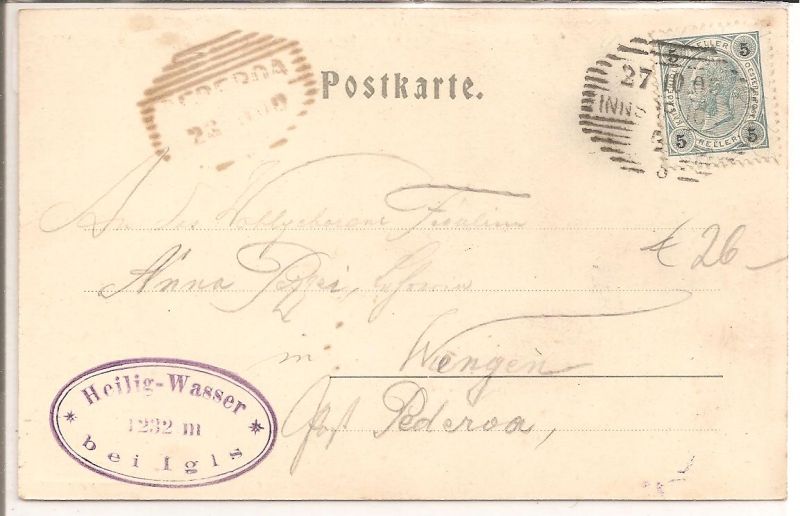 PEDEROA
Postkarte.
27
INNS
HELLER
5 5
5 5
HELLER
An das Wohlgeborene Fräulein
Anna
€ 26-
in Wengen
Post Pederoa,
Heilig-Wasser
1232 m
bei Igls